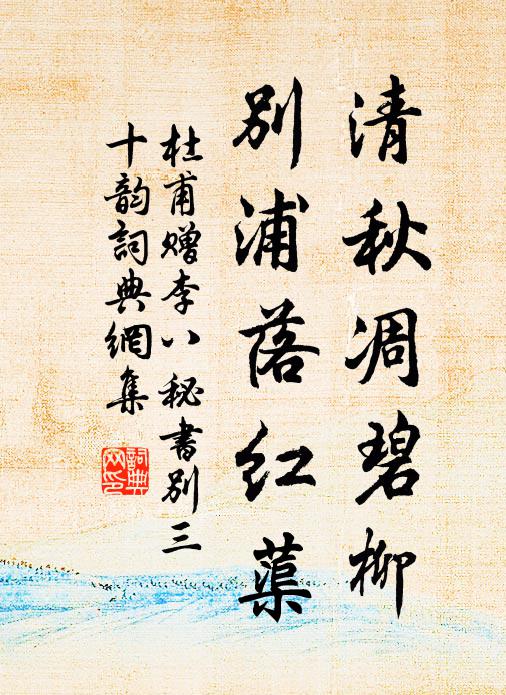 清秋凋碧柳
别浦落红蕖
杜甫赠李八秘書别三
十韵詞典網集
詞典
网印